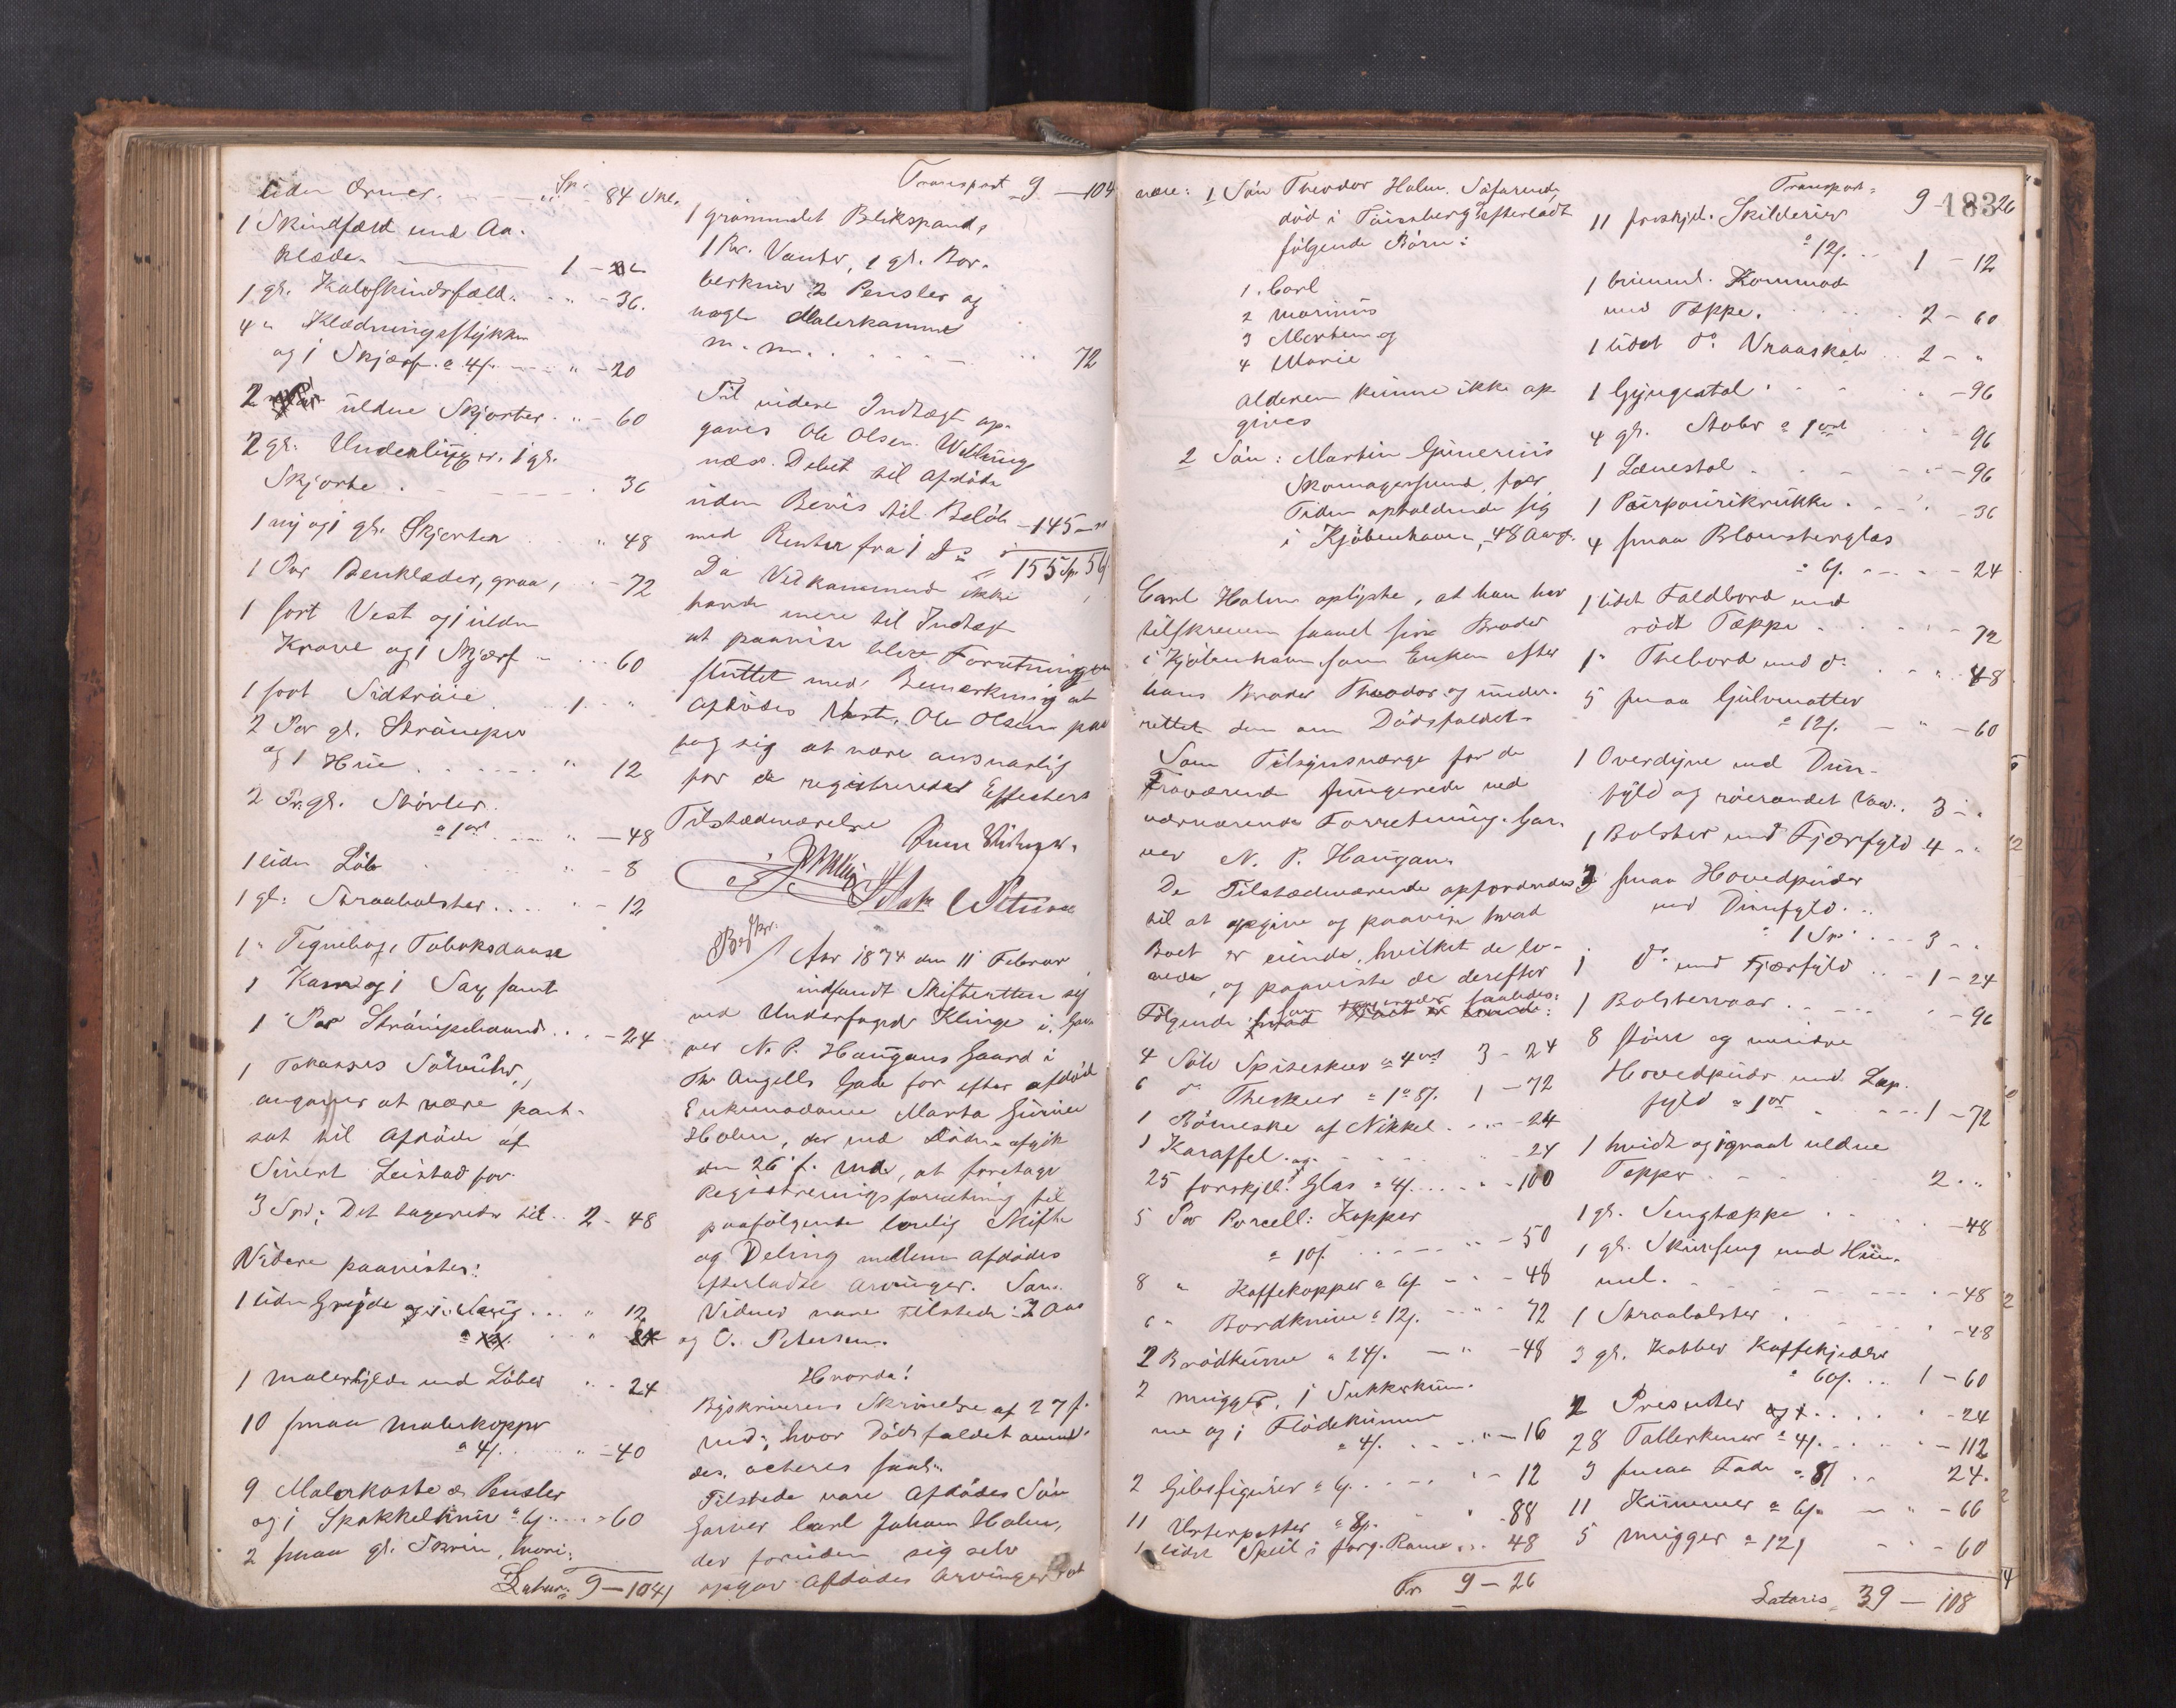 uden Ærmer. Sp. " - 84 Skl.
1 Skindfæld med Aa-
klæde. 1 -
1 gl. Kalvskindsfæld. " - 36.
4 " Klædningsstykker
og 1 Skjærf. a 4 s. " - 20
2 uldne Skjorter. " - 60
2 gl. Underliv, 1 gl.
Skjorte. 36
1 ny og 1 gl. Skjorter " 48
1 Par Benklæder, graa, " - 72
1 sort Vest og 1 ulden
Krave og 1 Skjærf - " 60
1 sort Sidtrøie 1 "
2 Par gl. Strømper
og 1 Hue " 12
2 Pr. gl. Støvler
a 1 ort " - 48
1 liden Løb " - 8
1 gl: Straabolster " - 12
1 " Tegnebog, Tobaksdaase
1 Kam og 1 Sax samt
1 Par Strømpebaand. - 24
1 Tokasses Sølvuhr,
angaves at være pant-
sat til Afdøde af
Sivert Leistad for
3 Spd; Det ansættes til 2 - 48
Videre paavistes:
1 liden Gryde og 1 " 12
1 Malerhylde med Løber " - 24
10 smaa Malerkopper
a 4 s. " - 40
9 Malerkoste & Pensler
og 1 Spakkelkniv a 6 s. " - 60
2 smaa gl. Skrin, hvori:
Latus: 9 - 104
Transport 9 - 104
1 grømmalet Blikspand,
1 Par. Vanter, 1 gl. Bar-
berkniv 2 Pensler og
nogle Malerkamme
m. m. " 72
Til videre Indtægt op-
gaves Ole Olsen
næs. Debet til Afdøde
uden Bevis til Beløb - 145 - "
med Renter fra 1
155 Sp. 56
Da Vedkommende ikke
havde mere til Indtægt
at paavise blev Forretningen
sluttet med Bemærkning at
Afdødes Vært, Ole Olsen paa
tog sig at være ansvarlig
for de registrerede Effecters
Tilstedeværelse
Aar 1874 den 11 Februar
indfandt Skifteretten sig
ved Underfoged Klinge i Gar-
ver N. P. Haugans Gaard i
Ths Angells Gade for efter afdøde
Enkemadame Marta Gurine
Holm, der ved Døden afgik
den 26 f. Md., at foretage
Registreringsforretning til
paafølgende lovlig Skifte
og Deling mellem afdødes
efterladte Arvinger. Som
Vidner vare tilstede: I. Aas
og O. Petersen.
Hvorda!
Byskriverens Skrivelse af 27 f.
Md., hvor Dødsfaldet anmel-
des, acteres saal.
Tilstede vare Afdødes Søn
Garver Carl Johan Holm,
der foruden sig selv
opgav Afdødes Arvinger at
være: 1 Søn Theodor Holm. Søfarende,
død i Tønsberg efterladt
følgende Børn:
1. Carl
2 Marinus
3 Morten og
4 Marie
Alderen kunne ikke op-
gives
2 Søn: Martin Gunerius
Skomagersvend, for
Tiden opholdende sig
i Kjøbenhavn, 48 Aar gl.
Carl Holm oplyste, at han har
tilskreven saavel sin Broder
i Kjøbenhavn som Enken efter
hans Broder Theodor og under-
rettet dem om Dødsfaldet.
Som Tilsynsværge for de
Fraværende fungerede ved
nærværende Forretning. Gar-
ver N. P. Haugan.
De Tilstedeværende opfordredes
til at opgive og paavise hvad
Boet er eiende, hvilket de lo-
vede, og paaviste de derefter
Følgende
4 Sølv Spiseskeer a 4 ort 3 - 24
6 do Theskeer a 1 ort 8 s. 1 - 72
1 Rømeske af Nikkel. " - 24
1 Karaffel og " 24
25 forskjell. Glas a 4 s. " - 100
5 Par Porcell: Kopper
a 10 s. " - 50
8 " Kaffekopper a 6 s. " - 48
6 " Bordknive a 12 s. " 72
2 Brødkurve a 24 s. " - 48
2 Mugger, 1 Sukkerkum-
me og 1 Flødekumme
a 4 s. " - 16
2 Gibsfigurer a 6 s. " - 12
11 Urtepotter a 8 s. " 88
1 lidet Speil i forg. Ramme 48
Tr. 9 - 26
183
Transport: 9 - 26
11 forskjel. Skilderier
a 12 s. 1 - 12
1 brunmal. Kommode
med Tæppe. 2 - 60
1 lidet do Vraaskab 2 - "
1 Gyngestol " - 96
4 gl. Stole a 1 ort 96
1 Lænestol " - 96
1 Potpourikrukke " - 36
4 smaa Blomsterglas
a 6 s. " - 24
1 lidet Faldbord med
rødt Tæppe " - 72
1 " Thebord med do " 48
5 smaa Gulvmatter
a 12 s. " - 60
1 Overdyne med Dun-
fyld og rørandet Vaar. 3 - "
1 Bolster med Fjærfyld 4 - "
3 smaa Hovedpuder
med Dunfyld
a 1 Sp. 3 - "
1 do med Fjærfyld 1 - 24
1 Bolstervaar " - 96
8 større og mindre
Hovedpuder med Lap-
fyld a 1 ort 1 - 72
1 hvidt og 1 graat uldne
Tepper 2 "
1 gl. Sengtæppe - 48
1 gl. Skuvseng med Him-
mel. - 48
1 Straabolster " - 48
3 gl. Kobber Kaffekjedler
a 60 s. 1 - 60
2 Presenter " - 24
28 Tallerkener a 4 s. " - 112
3 smaa Fade a 8 s. 24.
11 Kummer a 6 s. " - 66
5 Mugger a 12 s. " - 60
Lateris 39 - 108